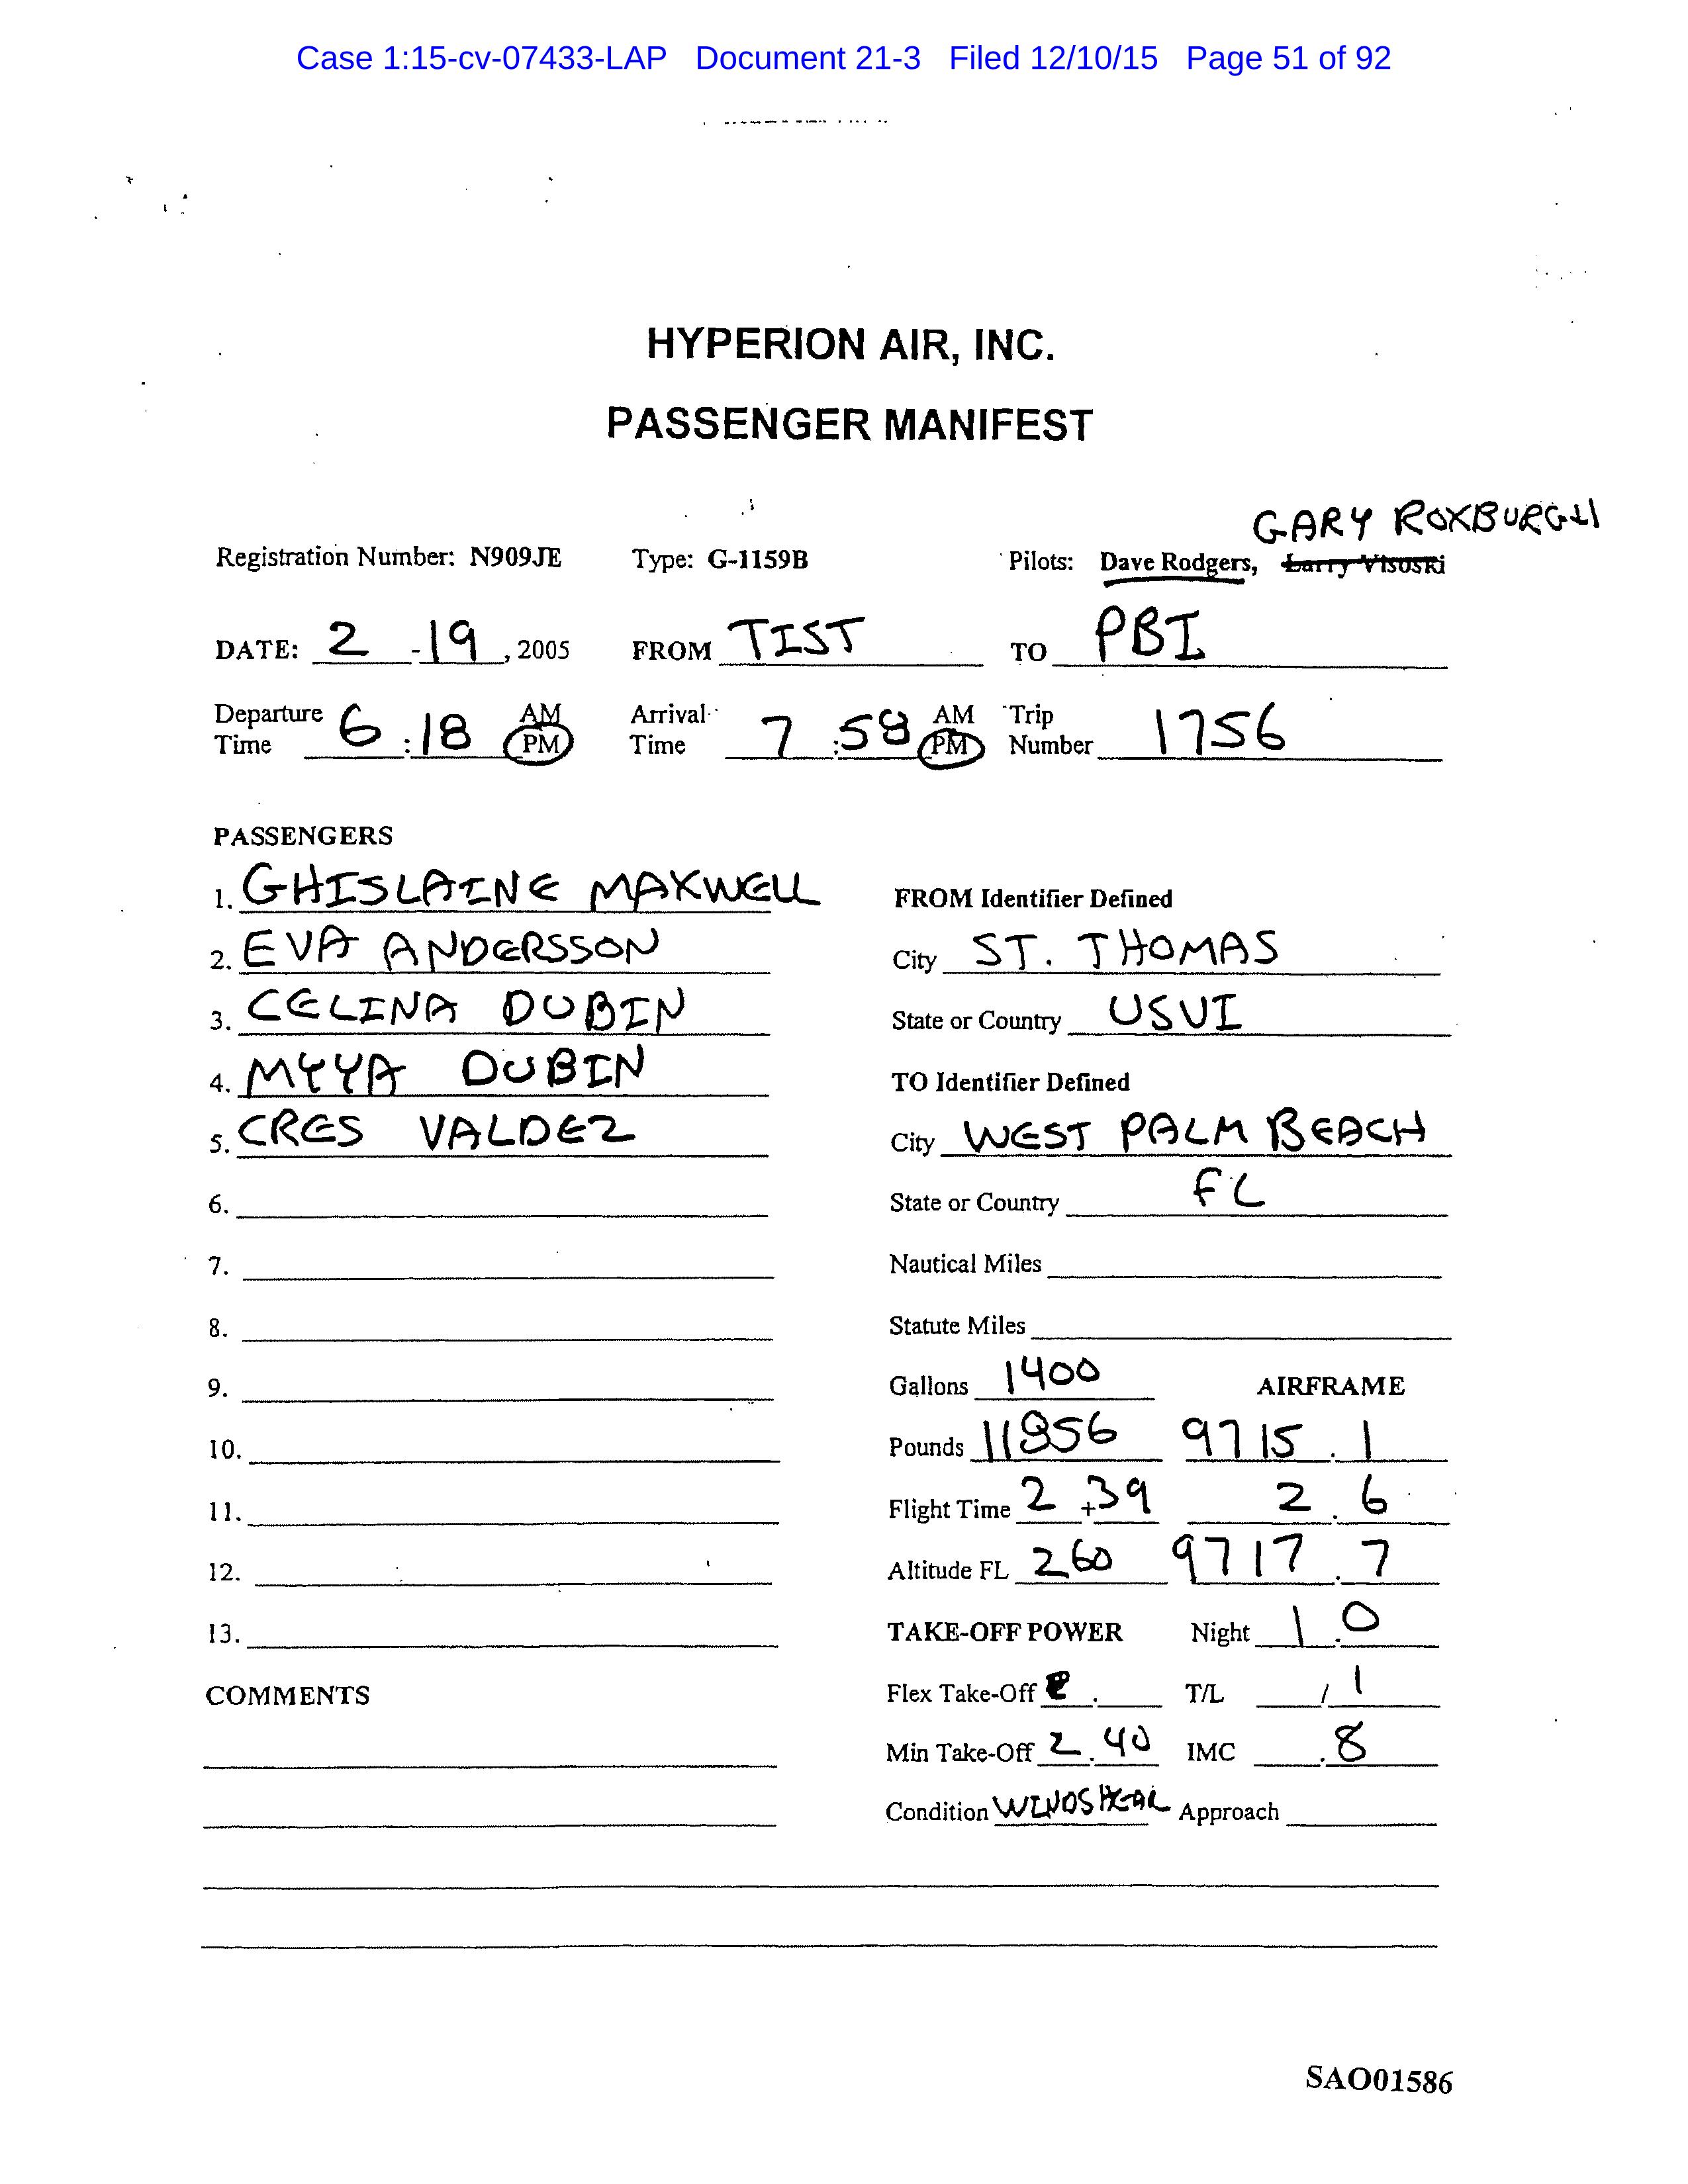 Case 1:15-cv-07433-LAP Document 21-3 Filed 12/10/15 Page 51 of 92
HYPERION AIR, INC.
PASSENGER MANIFEST
GARY ROXBURGH
Registration Number: N909JE Type: G-1159B Pilots: Dave Rodgers, Larry Visoski
DATE: 2 - 19, 2005 FROM TIST TO PBI
Departure Time 6:18 AM PM Arrival Time 7:58 AM PM Trip Number 1756
PASSENGERS
1. GHISLAINE MAXWELL
2. EVA ANDERSSON
3. CELINA DUBIN
4. MYYA DUBIN
5. CRES VALDEZ
6.
7.
8.
9.
10.
11.
12.
13.
COMMENTS
FROM Identifier Defined
City ST. THOMAS
State or Country USVI
TO Identifier Defined
City WEST PALM BEACH
State or Country FL
Nautical Miles
Statute Miles
Gallons 1400 AIRFRAME
Pounds 11856 9715.1
Flight Time 2+39 2.6
Altitude FL 260 9717.7
TAKE-OFF POWER Night 1.0
Flex Take-Off . T/L / 1
Min Take-Off 2.40 IMC .8
Condition WINDSHEAR Approach
SAO01586